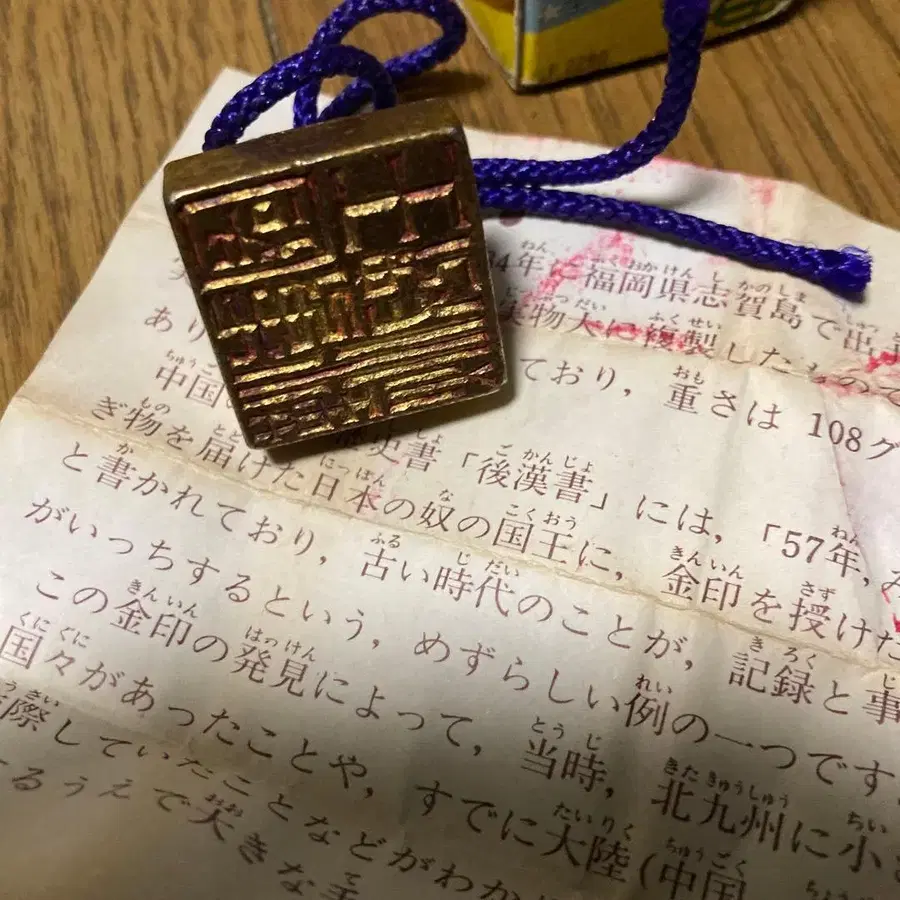 84年に福岡県志賀島で出
実物大に複製したもので
あり ており，重さは 108グ
中国 歴史書「後漢書」には，「57年，
ぎ物を届けた日本の奴の国王に，金印を授けた
と書かれており，古い時代のことが，記録と事
がいっちするという，めずらしい例の一つです
この金印の発見によって，当時，北九州に小
国々があったことや，すでに大陸(中国
際していたことなどがわか
るうえで大きな